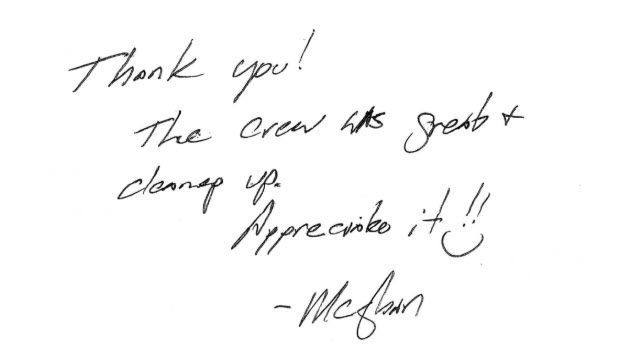 Thank you!
The crew was great +
cleaned up.
Appreciate it!!